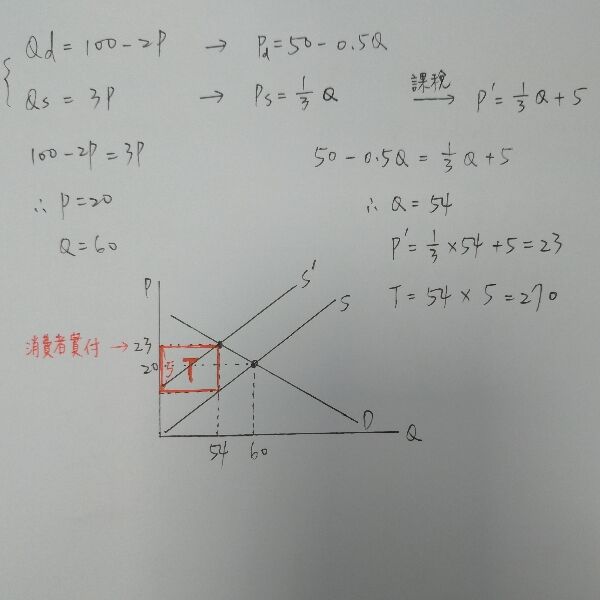 Qd = 100 - 2P → Pd = 50 - 0.5Q
Qs = 3P → Ps = 1/3 Q 課稅 → P' = 1/3 Q + 5
100 - 2P = 3P
∴ P = 20
Q = 60
50 - 0.5Q = 1/3 Q + 5
∴ Q = 54
P' = 1/3 × 54 + 5 = 23
T = 54 × 5 = 270
P
S'
S
消費者實付 → 23
20
5
T
D
Q
54
60